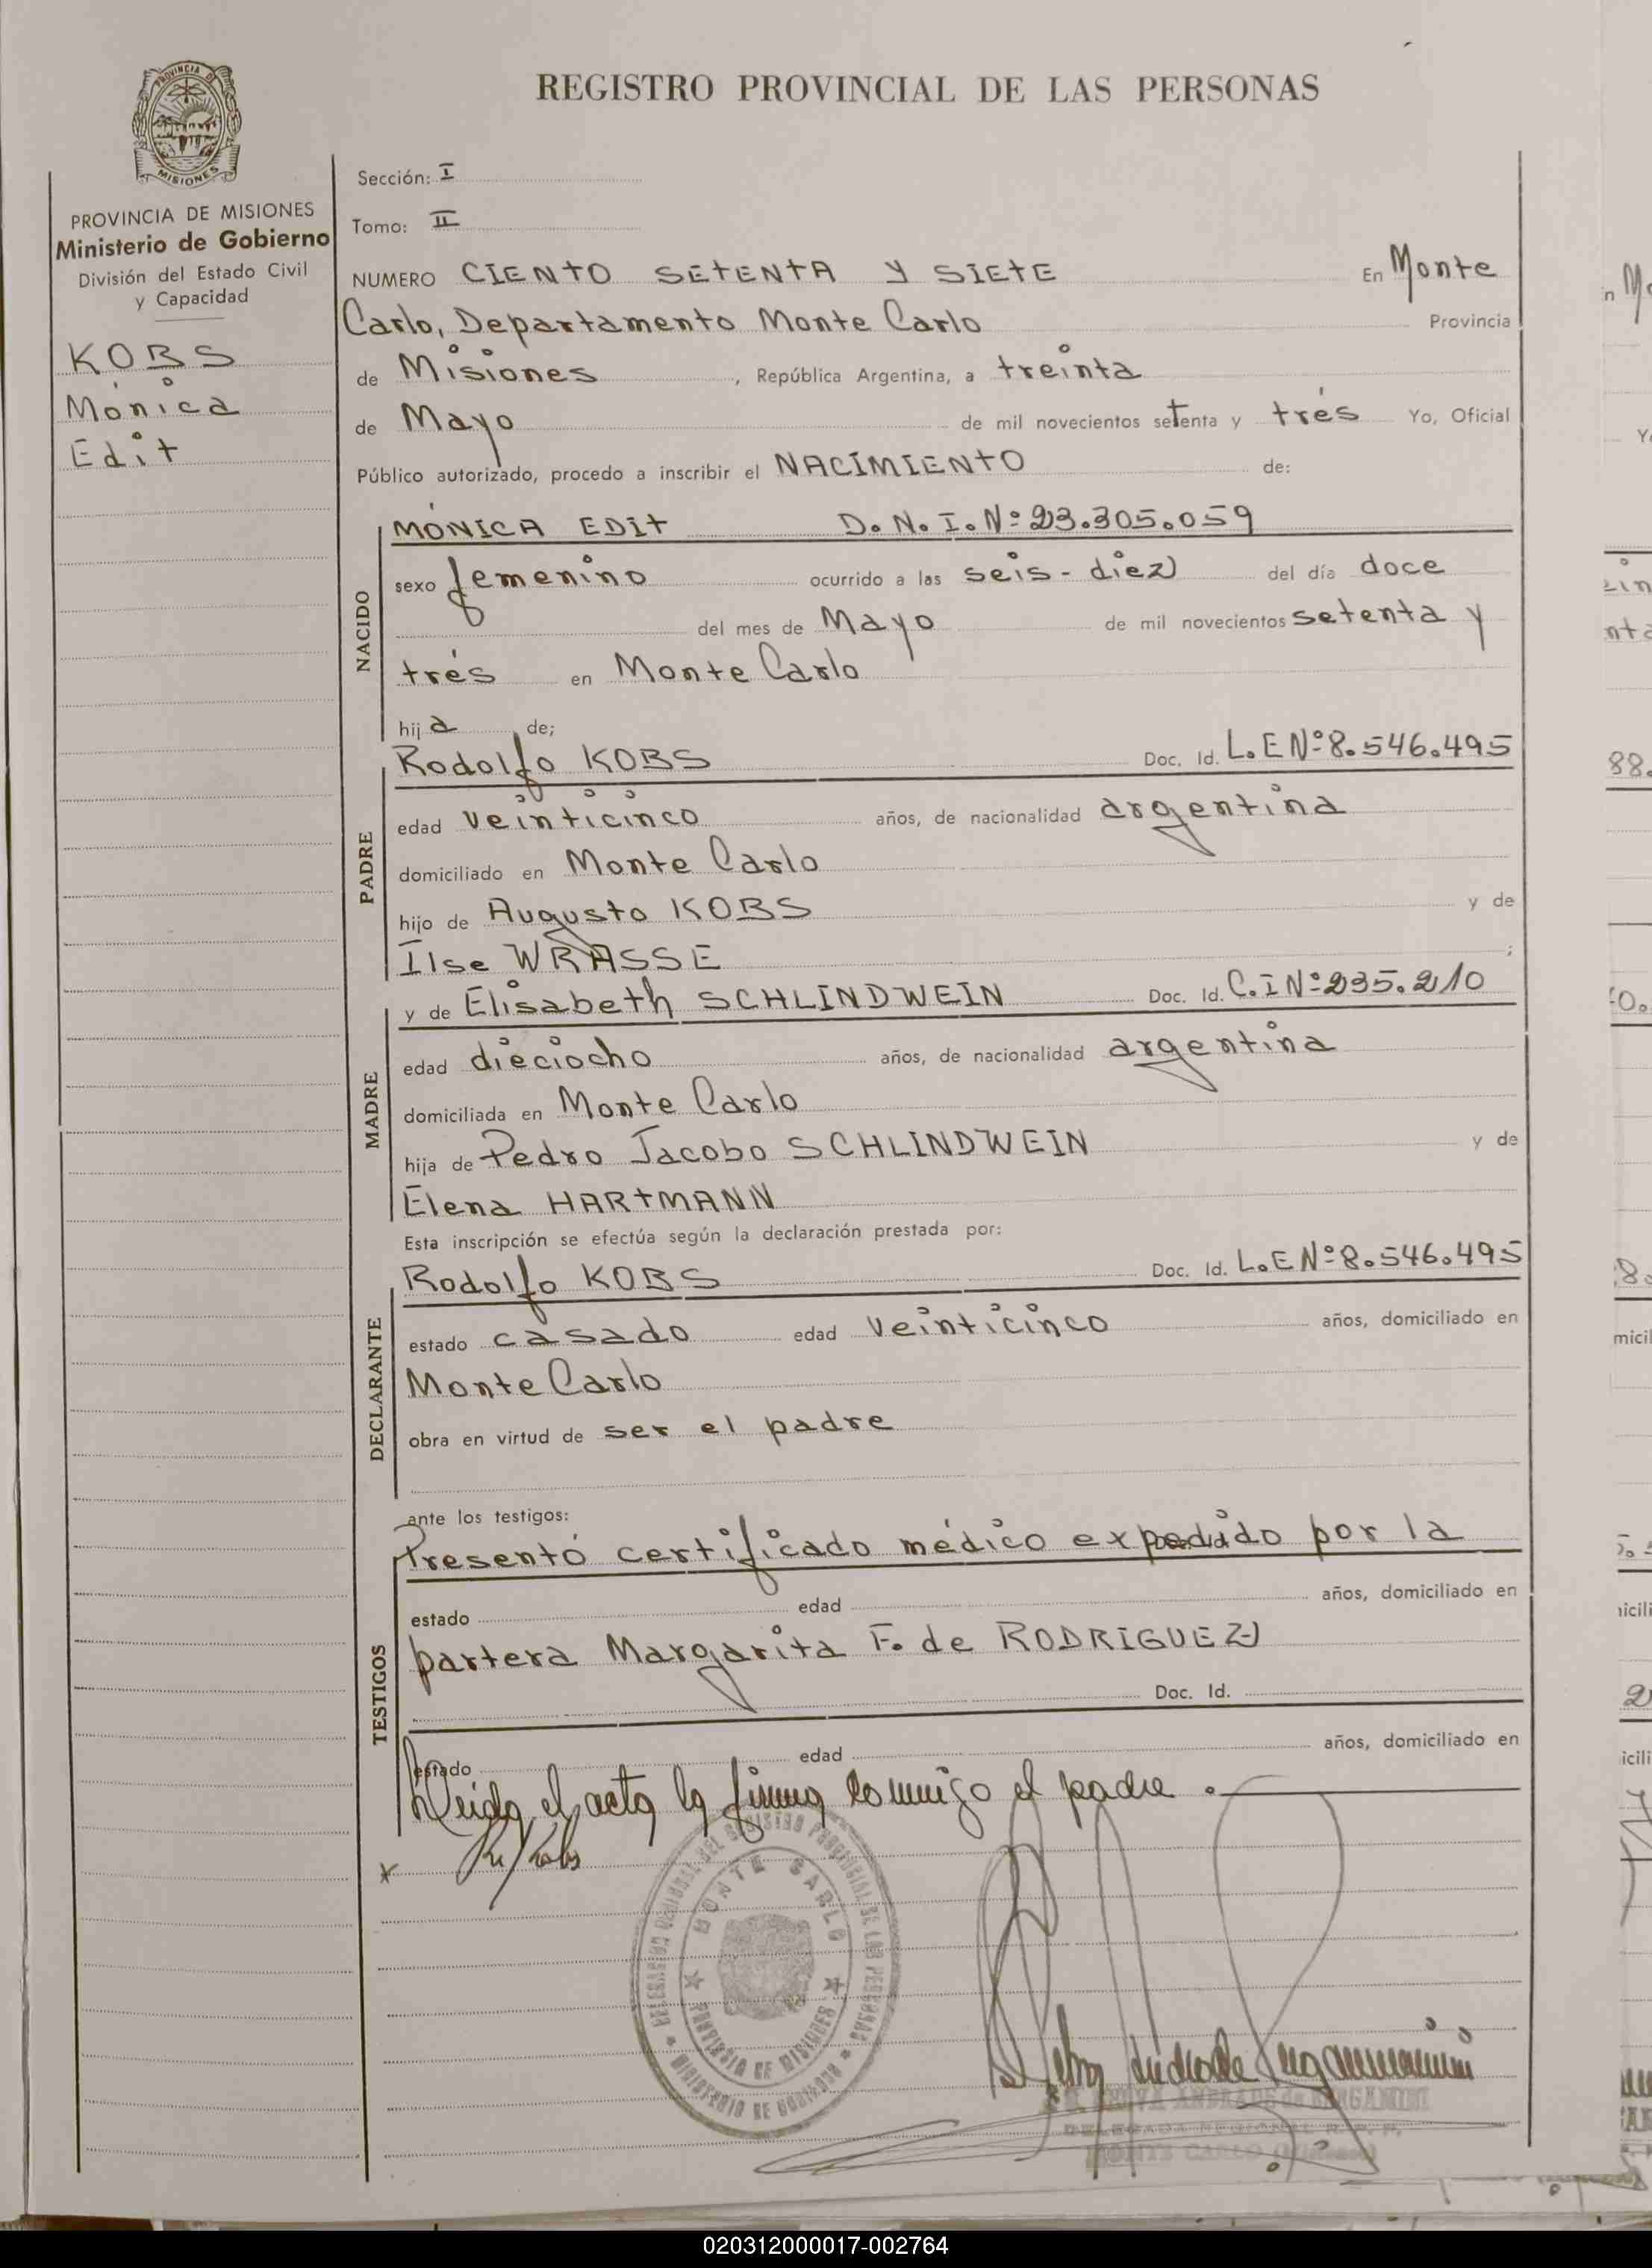 REGISTRO PROVINCIAL DE LAS PERSONAS
PROVINCIA DE MISIONES
PROVINCIA DE MISIONES
Ministerio de Gobierno
División del Estado Civil
y Capacidad
KOBS
Mónica
Edit
Sección: I
Tomo: II
NUMERO CIENTO SETENTA Y SIETE En Monte
Carlo, Departamento Monte Carlo Provincia
de Misiones, República Argentina, a treinta
de Mayo de mil novecientos setenta y trés Yo, Oficial
Público autorizado, procedo a inscribir el NACIMIENTO de:
NACIDO
MÓNICA EDIT D.N.I.Nº 23.305.059
sexo femenino ocurrido a las seis-diez del día doce
del mes de Mayo de mil novecientos setenta y
trés en Monte Carlo
hija de;
PADRE
Rodolfo KOBS Doc. Id. L.E Nº 8.546.495
edad veinticinco años, de nacionalidad argentina
domiciliado en Monte Carlo
hijo de Augusto KOBS y de
Ilse WRASSE ;
MADRE
y de Elisabeth SCHLINDWEIN Doc. Id. C.I Nº 235.210
edad dieciocho años, de nacionalidad argentina
domiciliada en Monte Carlo
hija de Pedro Jacobo SCHLINDWEIN y de
Elena HARTMANN
Esta inscripción se efectúa según la declaración prestada por:
DECLARANTE
Rodolfo KOBS Doc. Id. L.E Nº 8.546.495
estado casado edad veinticinco años, domiciliado en
Monte Carlo
obra en virtud de ser el padre
TESTIGOS
ante los testigos:
Presentó certificado médico expedido por la
estado edad años, domiciliado en
partera Margarita F. de RODRIGUEZ
Doc. Id.
estado edad años, domiciliado en
Leida el acta la firma conmigo el padre.
x
MONTE CARLO
PROVINCIA DE MISIONES
MINISTERIO DE GOBIERNO
DEL REGISTRO PROVINCIAL DE LAS PERSONAS
ANDRADE de BERGAMINI
DELEGADA REGIONAL R. P. P.
MONTE CARLO (Misiones)
020312000017-002764